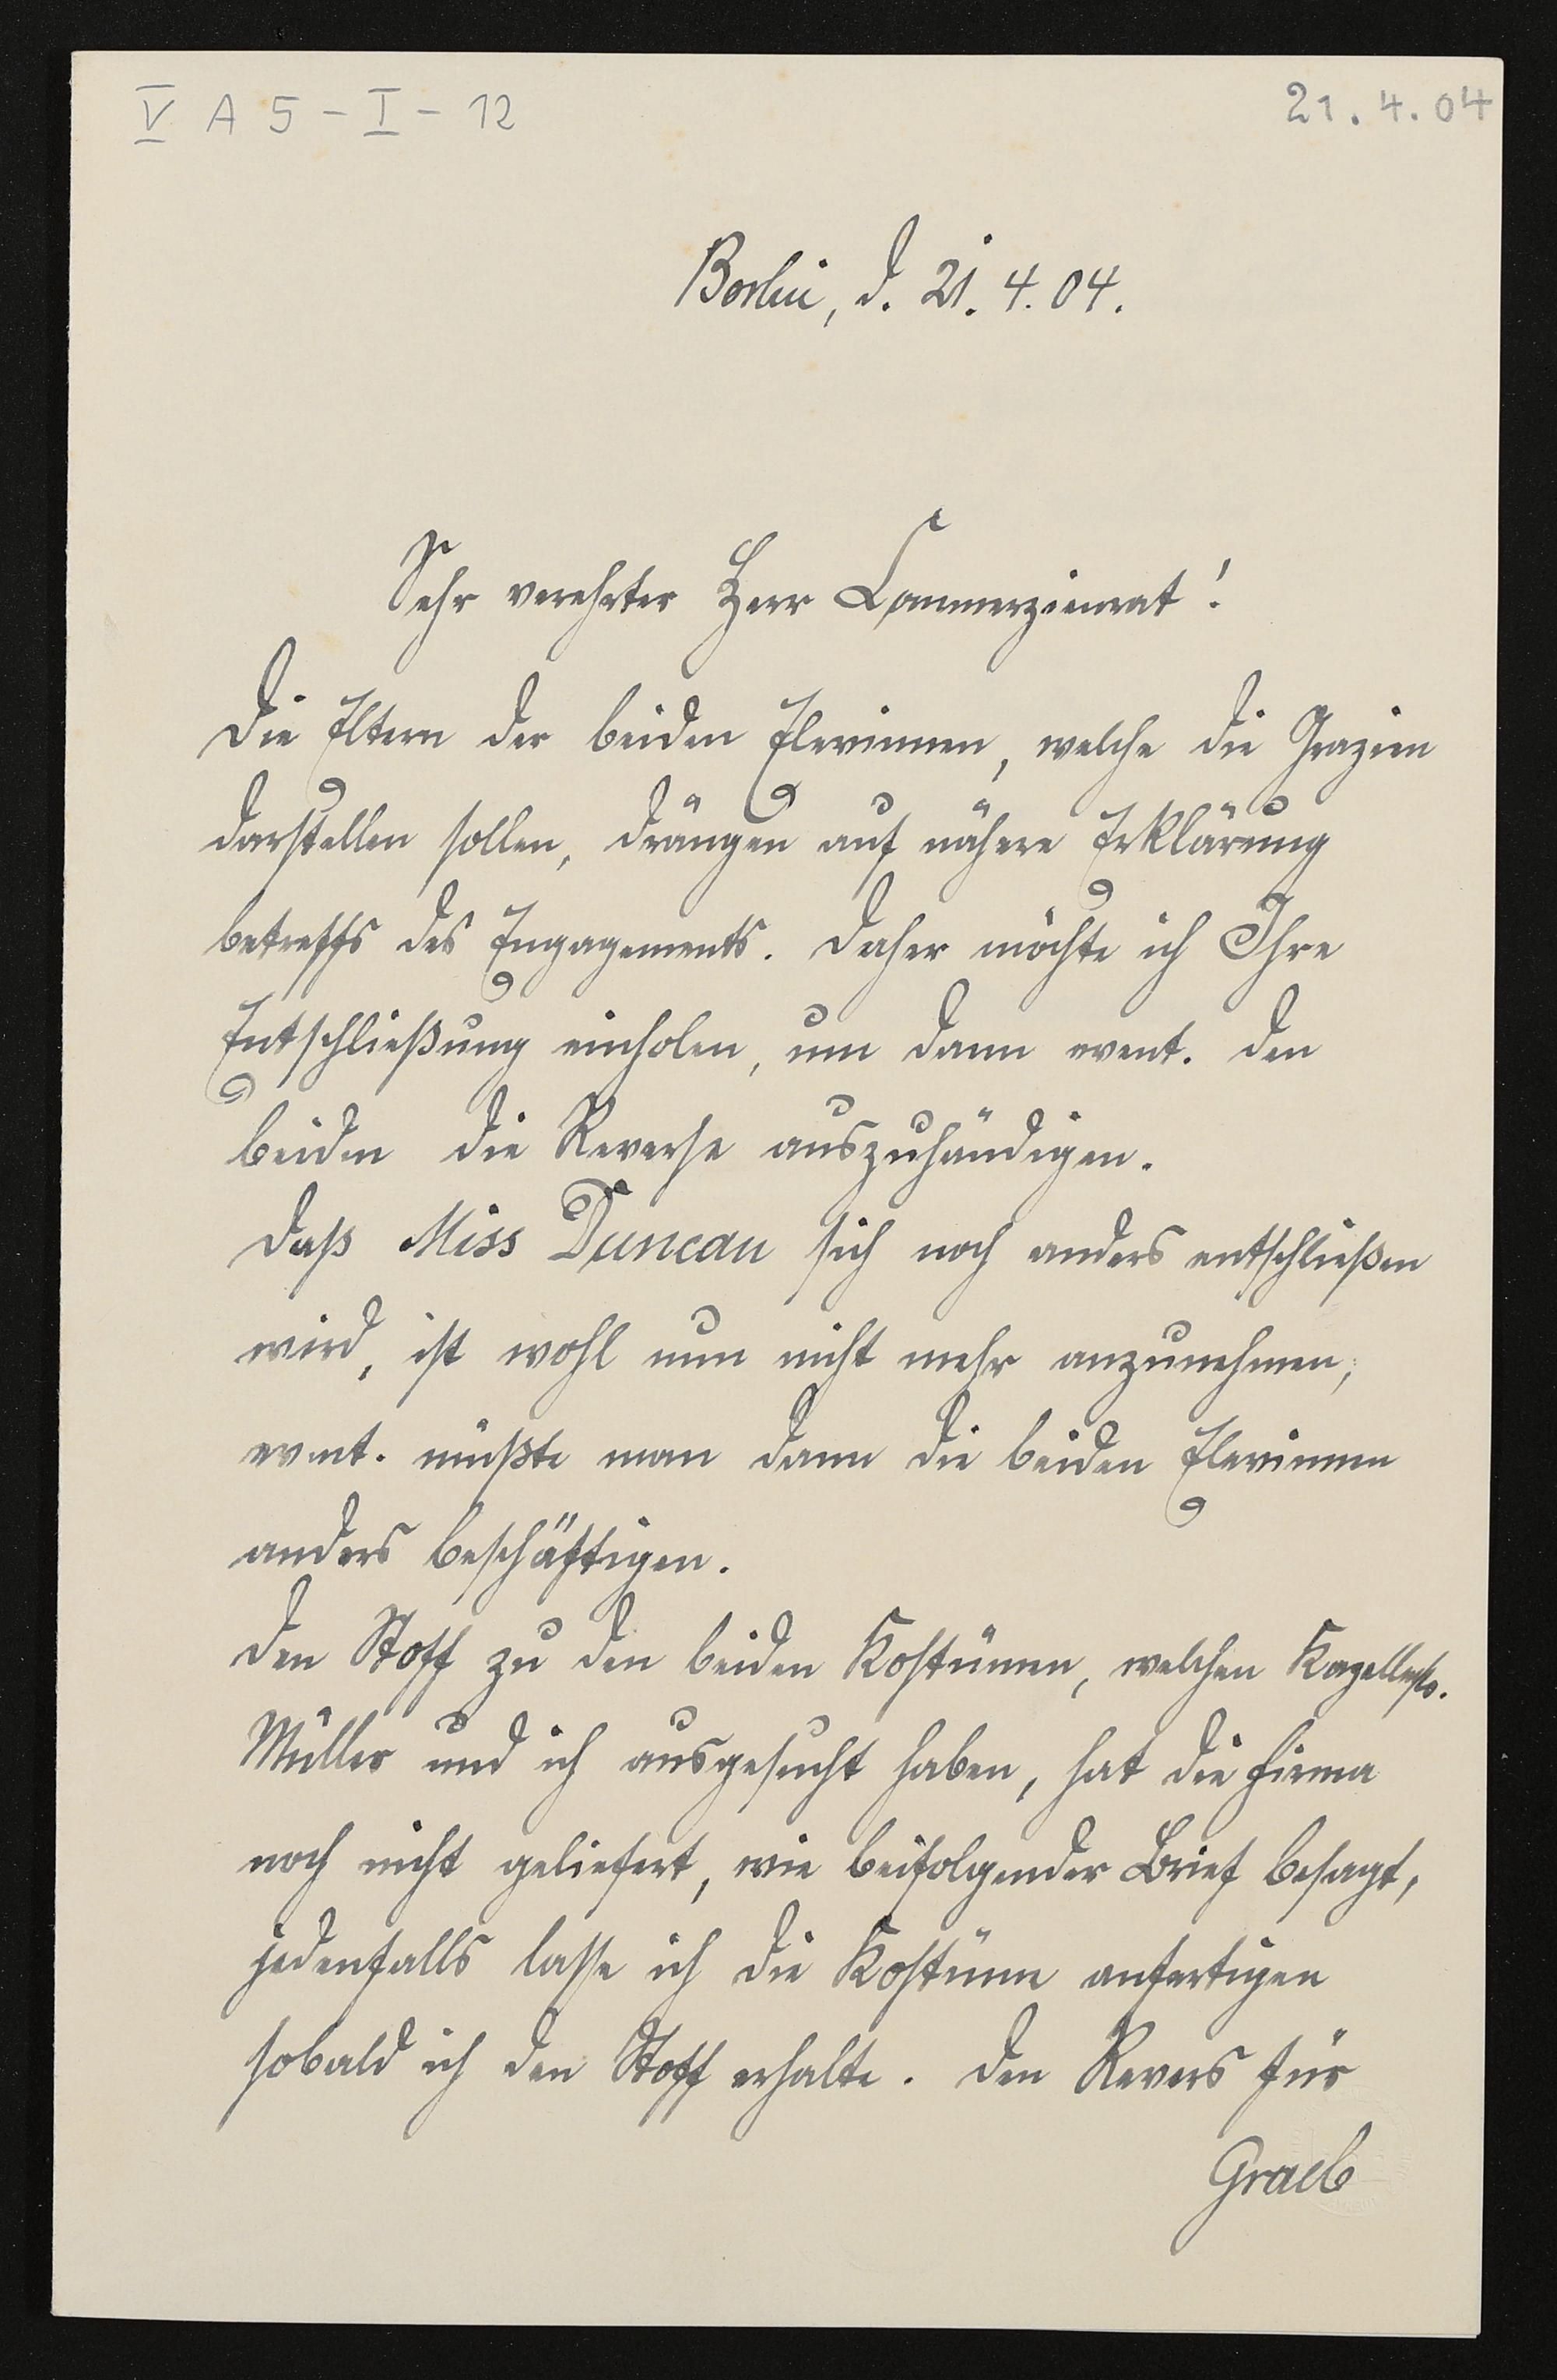 V A 5 - I - 12
21. 4. 04
Berlin, d. 21. 4. 04.
Sehr verehrter Herr Commerzienrat!
Die Eltern der beiden Elevinnen, welche die Grazien
darstellen sollen, drängen auf nähere Erklärung
betreffs des Engagements. Daher möchte ich Ihre
Entschließung einholen, um dann event. den
beiden die Reverse auszuhändigen.
Daß Miss Duncan sich noch anders entschließen
wird, ist wohl nun nicht mehr anzunehmen,
event. müßte man dann die beiden Elevinnen
anders beschäftigen.
Den Stoff zu den beiden Kostümen, welchen Kapellmstr.
Müller und ich ausgesucht haben, hat die Firma
noch nicht geliefert, wie beifolgender Brief besagt,
jedenfalls lasse ich die Kostüme anfertigen
sobald ich den Stoff erhalte. Den Revers für
Graeb